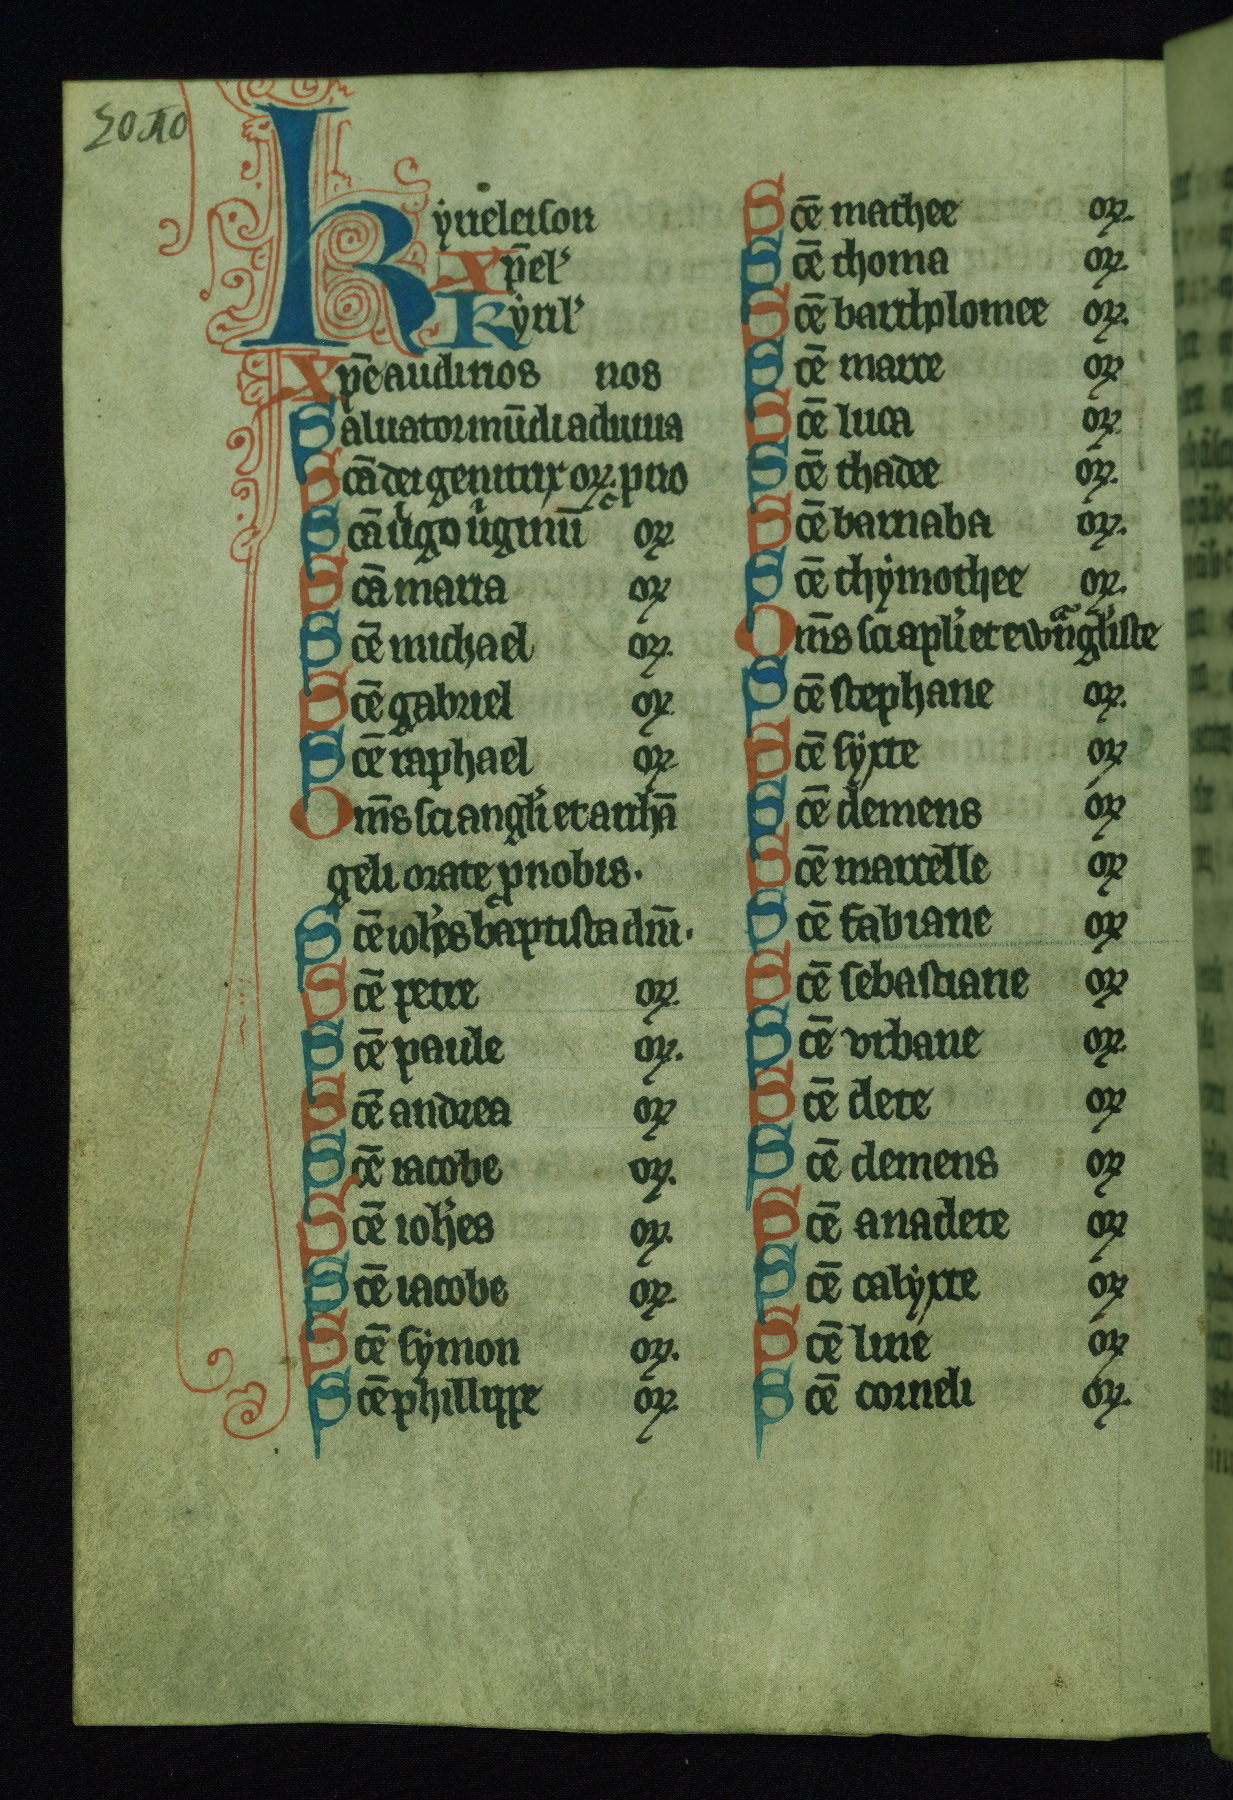 Kyrieleison
Xp̄el'
Kyriel'
Xp̄e audi nos nos
Saluator mūdi adiuua
Scā dei genitrix or. pro
Scā uigo uiginū or
Scā maria or
Scē michael or.
Scē gabriel or
Scē raphael or
Om̄s sci angl'i et archā
geli orate p nobis.
Scē ioh'es baptista dm̄.
Scē petre or.
Scē paule or.
Scē andrea or
Scē iacobe or.
Scē ioh'es or.
Scē iacobe or.
Scē symon or.
Scē philippe or.
Scē mathee or.
Scē thoma or.
Scē bartholomee or.
Scē marce or
Scē luca or
Scē thadee or.
Scē barnaba or.
Scē thymothee or.
Om̄s sci apl'i et ewāgl'iste
Scē stephane or.
Scē syxte or
Scē clemens or
Scē marcelle or
Scē fabiane or
Scē sebastiane or
Scē vrbane or.
Scē clete or
Scē clemens or
Scē anaclete or
Scē calyxte or
Scē line or
Scē corneli or.